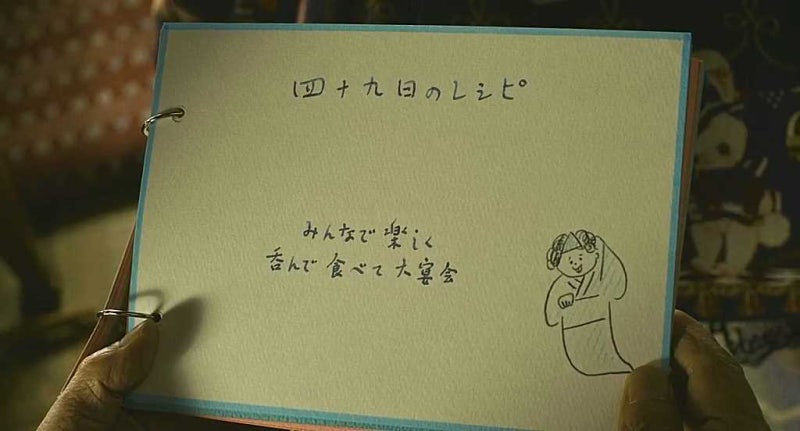 四十九日のレシピ
みんなで楽しく
呑んで食べて大宴会